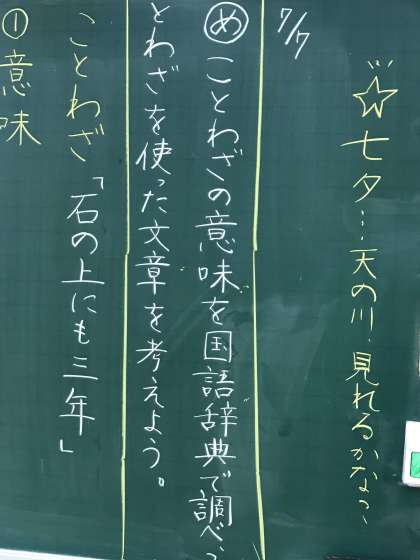 ☆七夕…天の川、見れるかなぁ
7/7
めことわざの意味を国語辞典で調べ、
とわざを使った文章を考えよう。
ことわざ「石の上にも三年」
①意味